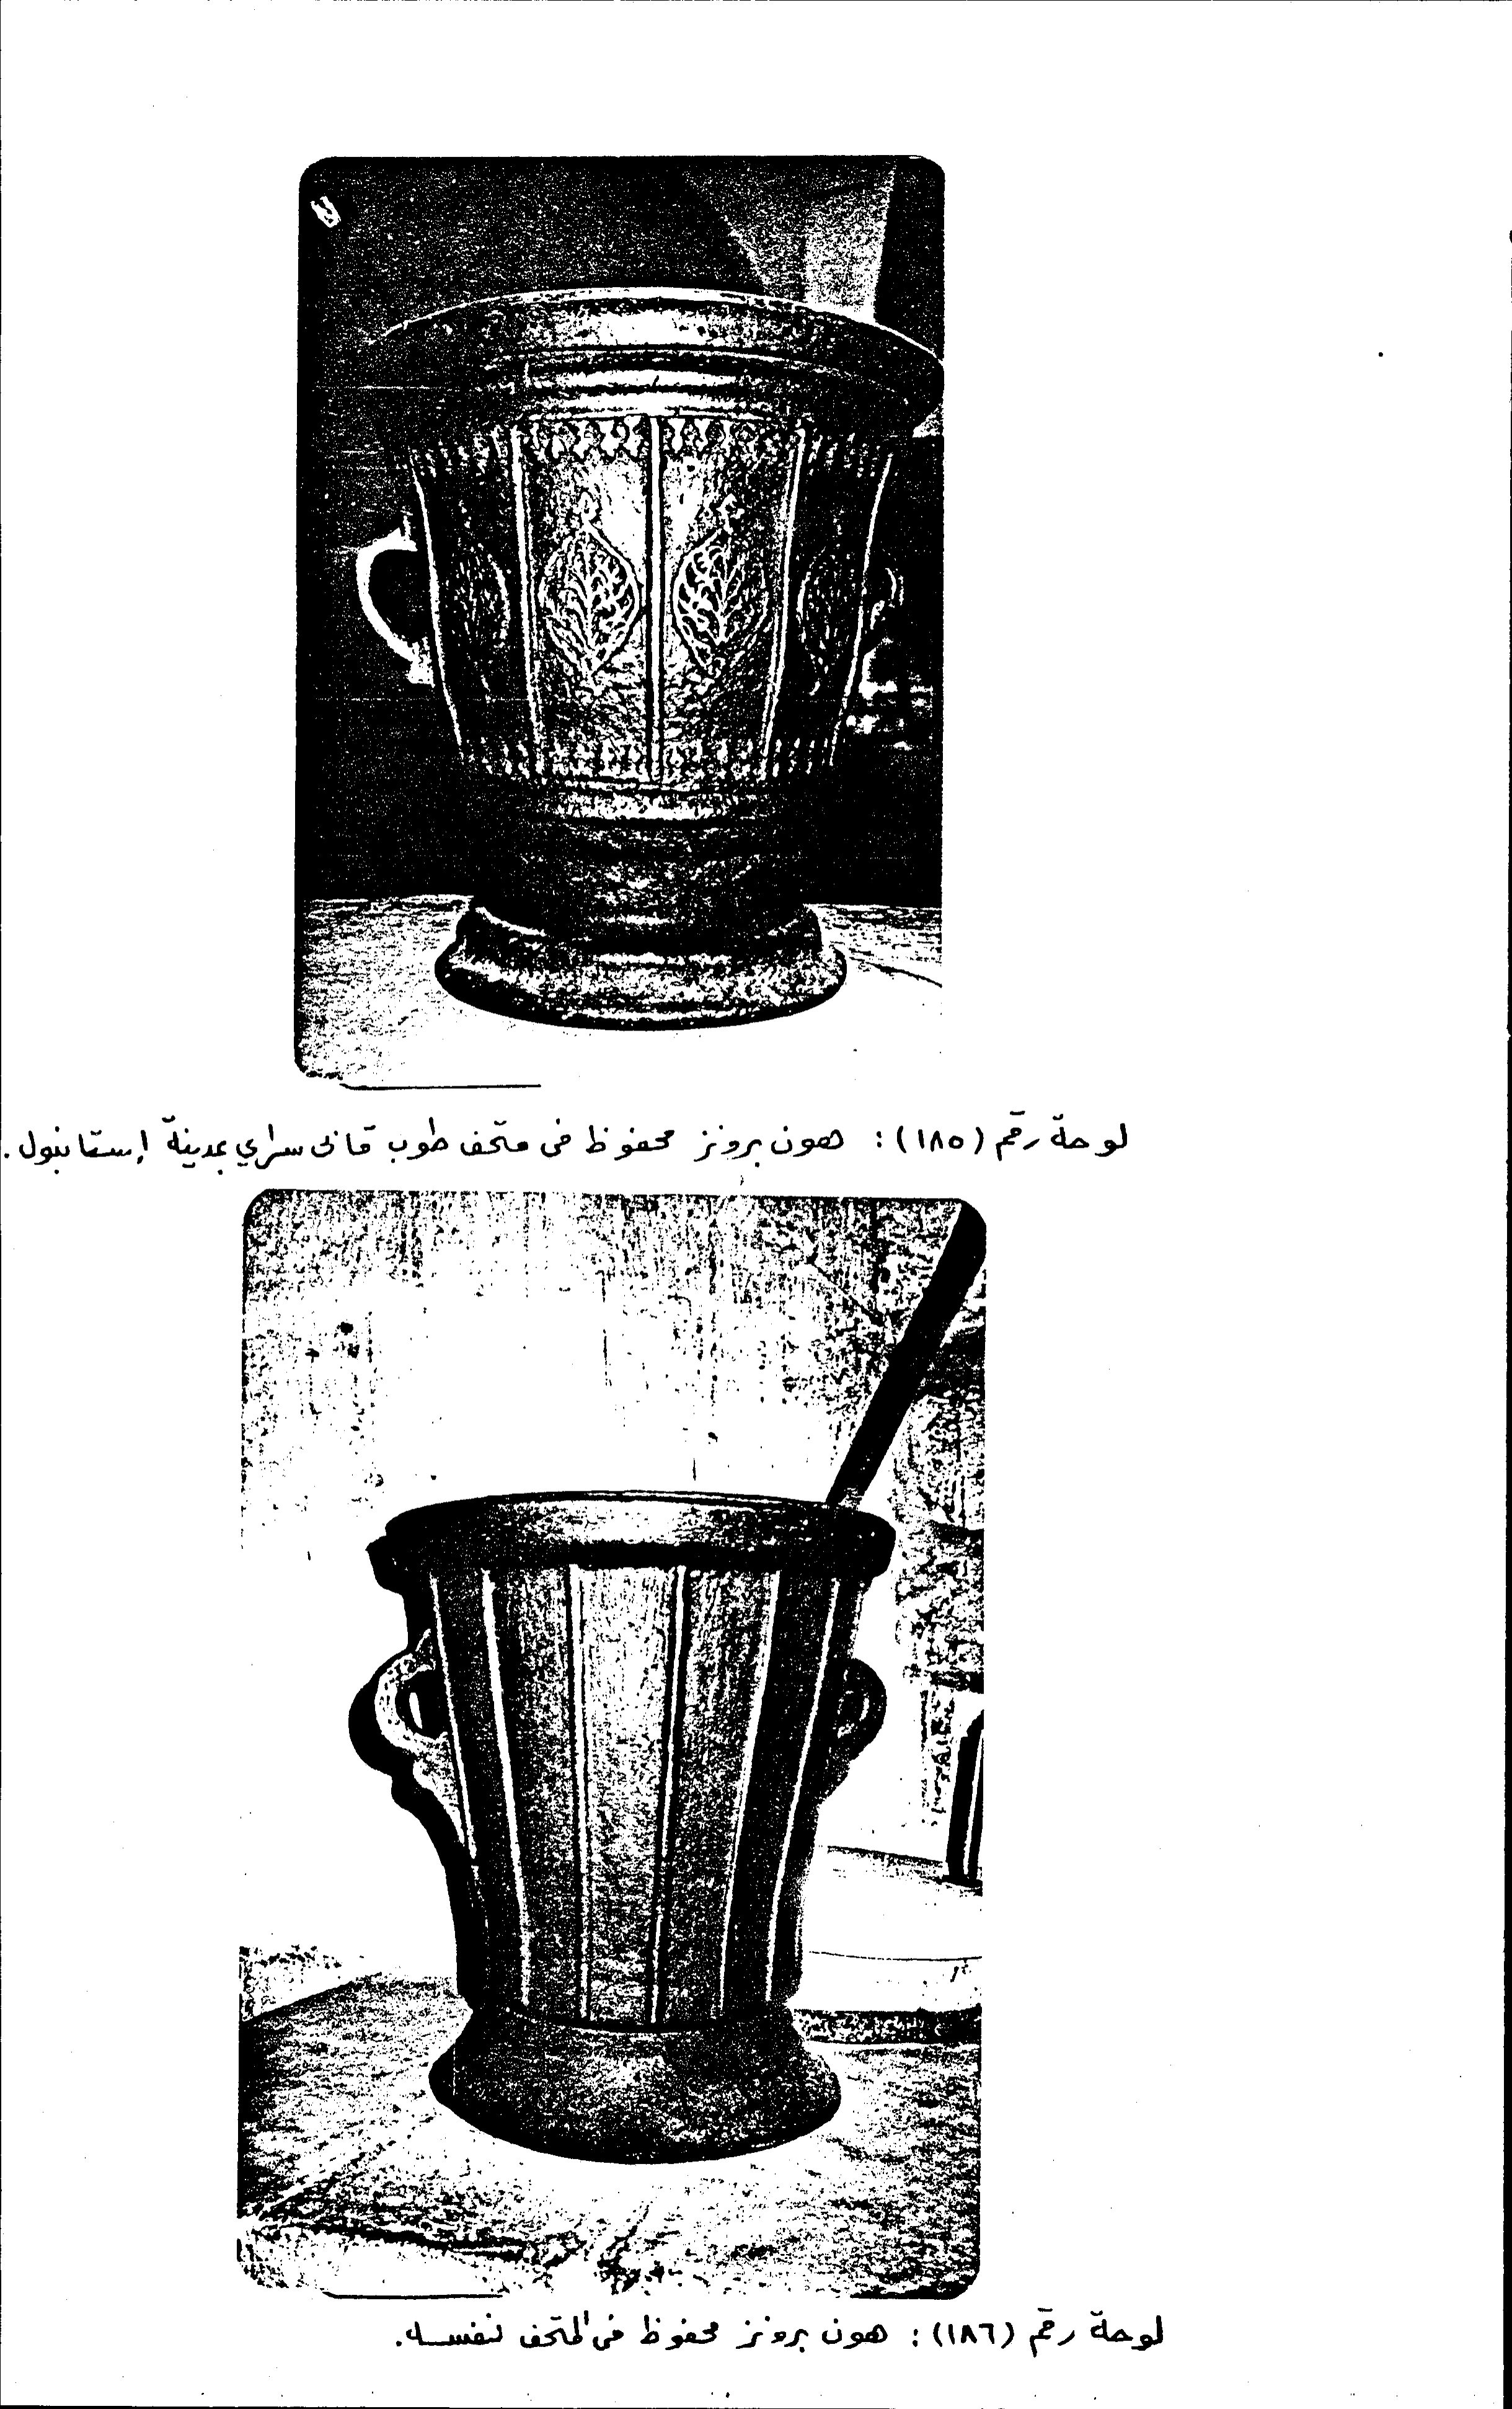 لوحة رقم (١٨٥): هون برونز محفوظ فى متحف طوب قابى سراي بمدينة إستانبول.
لوحة رقم (١٨٦): هون برونز محفوظ فى المتحف نفسه.